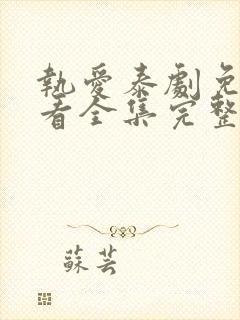 執愛泰劇免
看全集完整
蘇芸